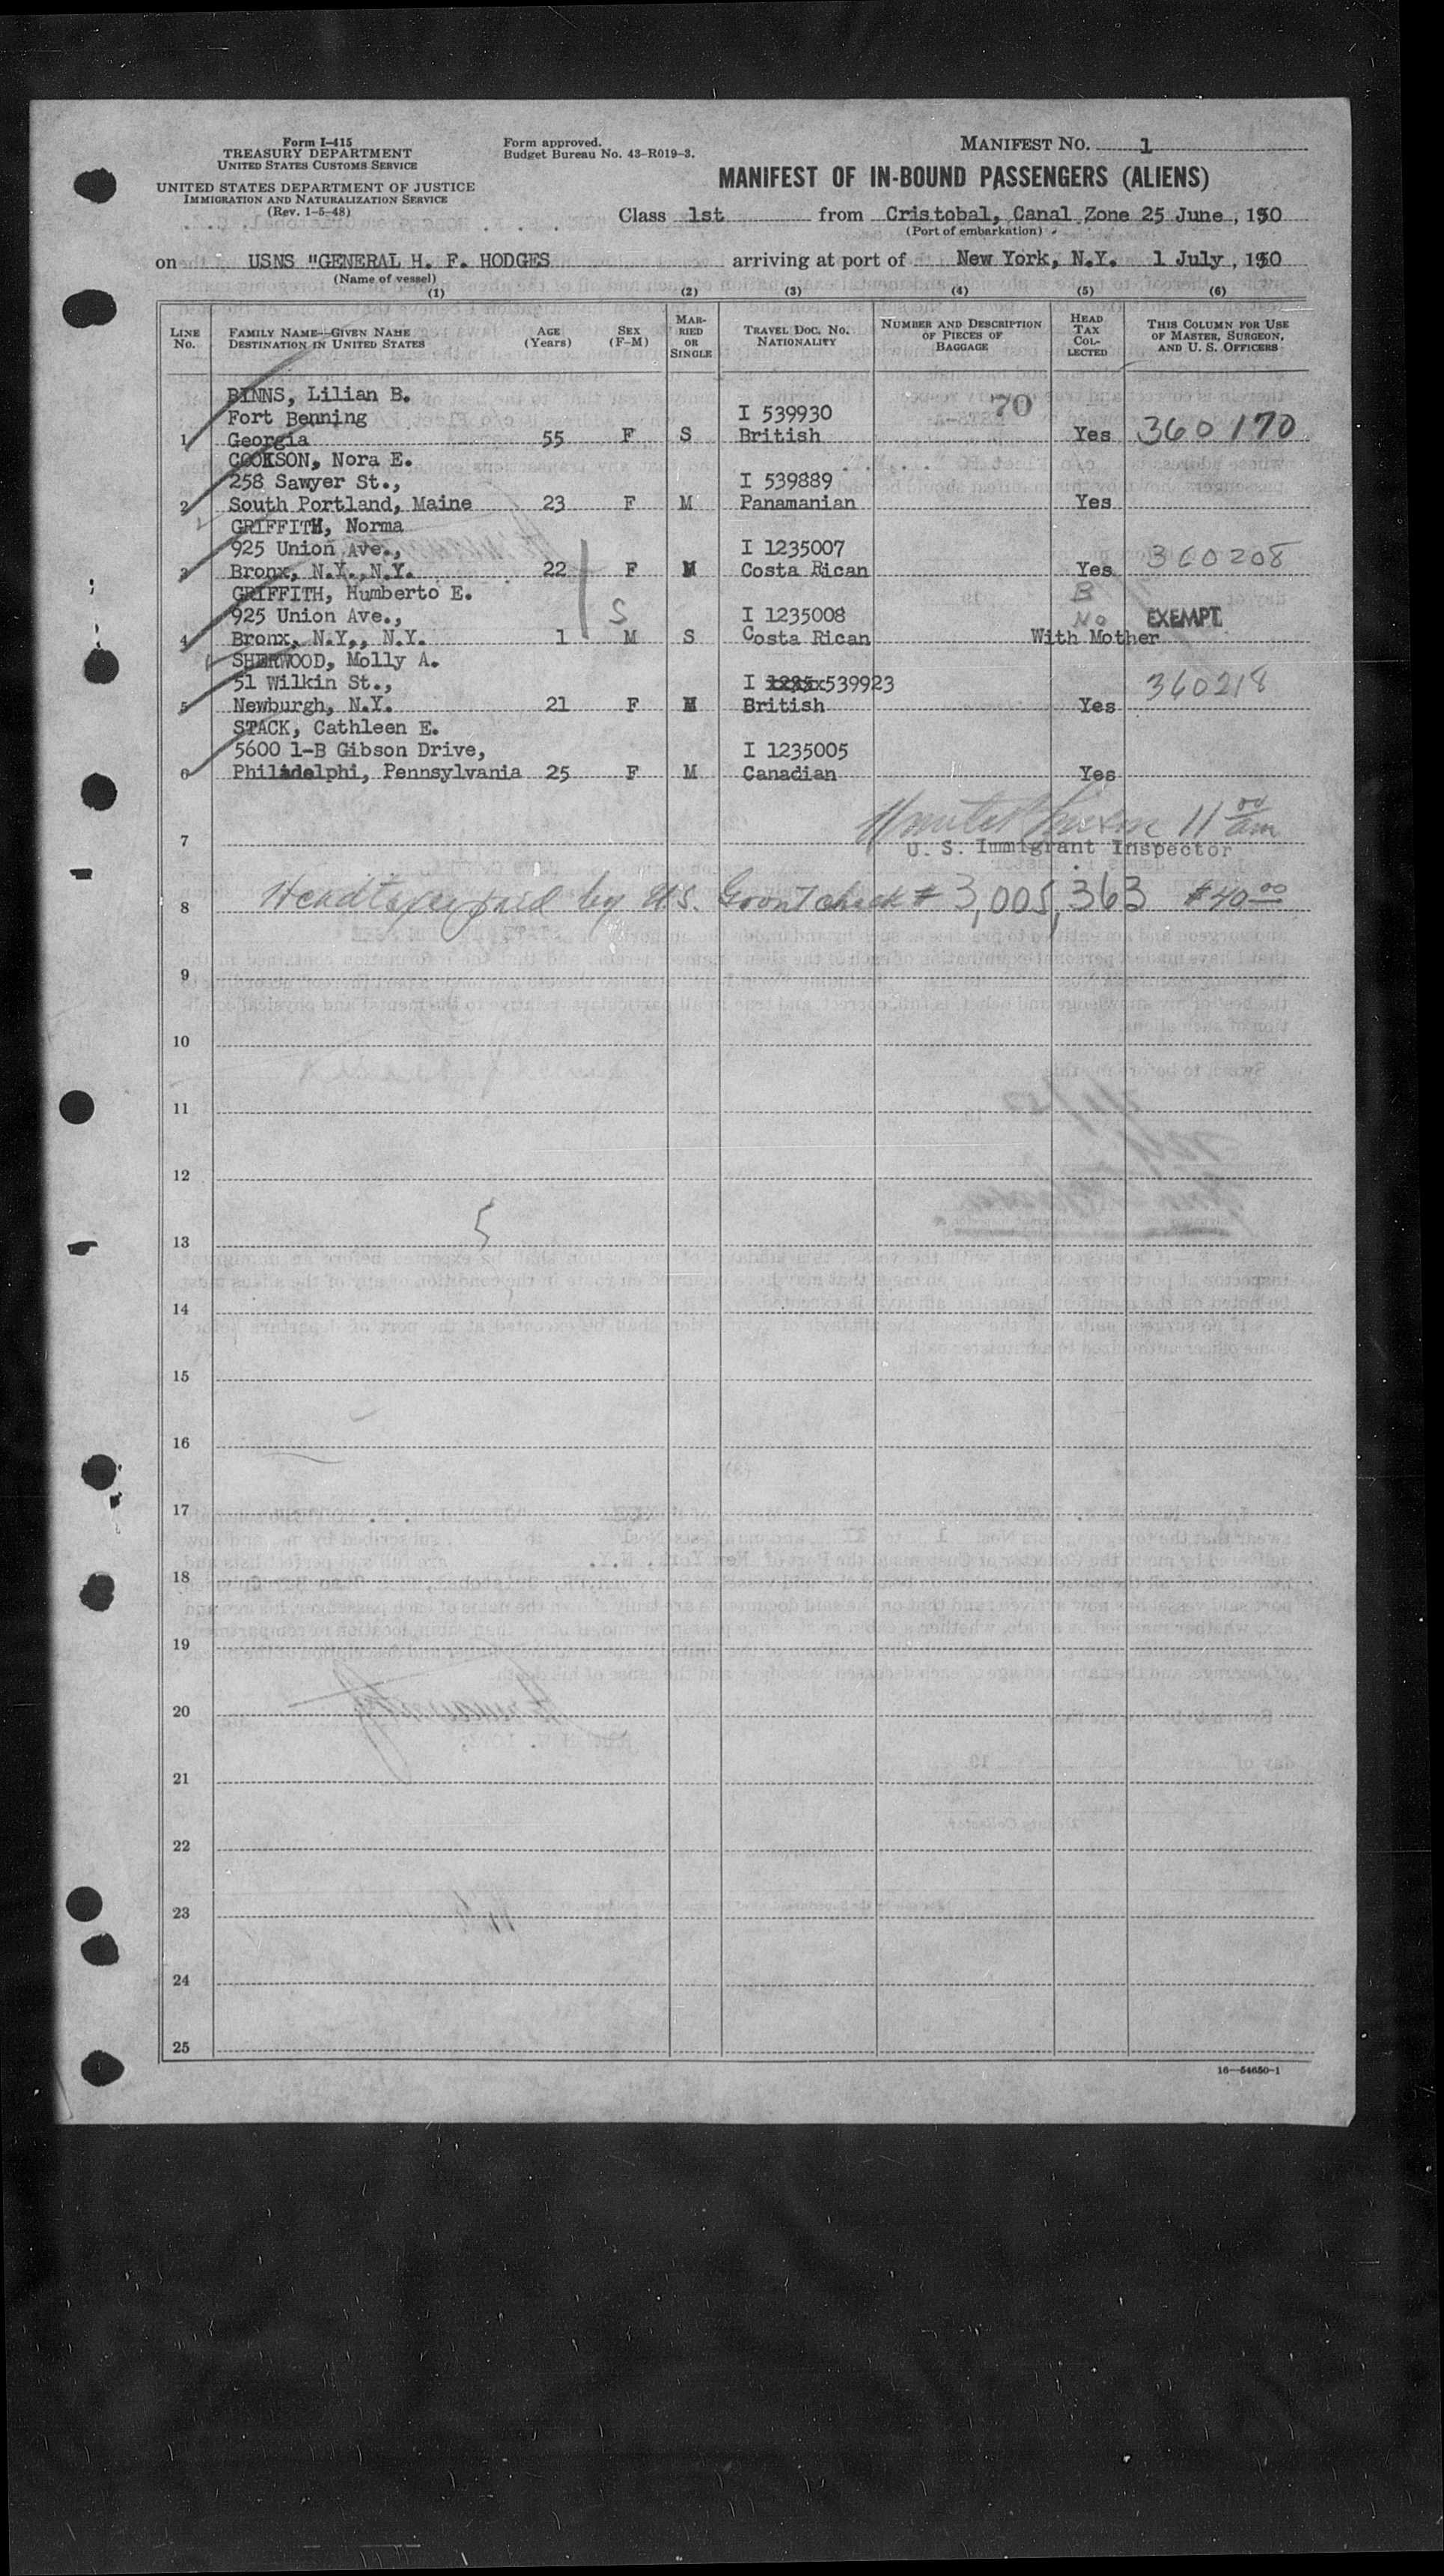 Form I-415
TREASURY DEPARTMENT
UNITED STATES CUSTOMS SERVICE
UNITED STATES DEPARTMENT OF JUSTICE
IMMIGRATION AND NATURALIZATION SERVICE
(Rev. 1-5-48)
Form approved.
Budget Bureau No. 43-R019-3.
MANIFEST NO. 1
MANIFEST OF IN-BOUND PASSENGERS (ALIENS)
Class 1st from Cristobal, Canal Zone 25 June, 1950
(Port of embarkation)
on USNS "GENERAL H. F. HODGES arriving at port of New York, N.Y. 1 July, 1950
(Name of vessel)
(1) (2) (3) (4) (5) (6)
LINE No. FAMILY NAME—GIVEN NAME DESTINATION IN UNITED STATES AGE (Years) SEX (F-M) MARRIED OR SINGLE TRAVEL DOC. NO. NATIONALITY NUMBER AND DESCRIPTION OF PIECES OF BAGGAGE HEAD TAX COLLECTED THIS COLUMN FOR USE OF MASTER, SURGEON, AND U. S. OFFICERS
BINNS, Lilian B.
Fort Benning I 539930 70
1 Georgia 55 F S British Yes 360170
COOKSON, Nora E.
258 Sawyer St., I 539889
2 South Portland, Maine 23 F M Panamanian Yes
GRIFFITH, Norma
925 Union Ave., I 1235007
3 Bronx, N.Y.,N.Y. 22 F M Costa Rican Yes 360208
GRIFFITH, Humberto E. B
925 Union Ave., S I 1235008 No EXEMPT.
4 Bronx, N.Y., N.Y. 1 M S Costa Rican With Mother
SHERWOOD, Molly A.
51 Wilkin St., I 539923
5 Newburgh, N.Y. 21 F M British Yes 360218
STACK, Cathleen E.
5600 1-B Gibson Drive, I 1235005
6 Philadelphi, Pennsylvania 25 F M Canadian Yes
11 00 am
7 U. S. Immigrant Inspector
8 Headtaxes paid by U.S. Govn't check # 3,005,363 $40.00
9
10
11
12
13
14
15
16
17
18
19
20
21
22
23
24
25
16—54650-1